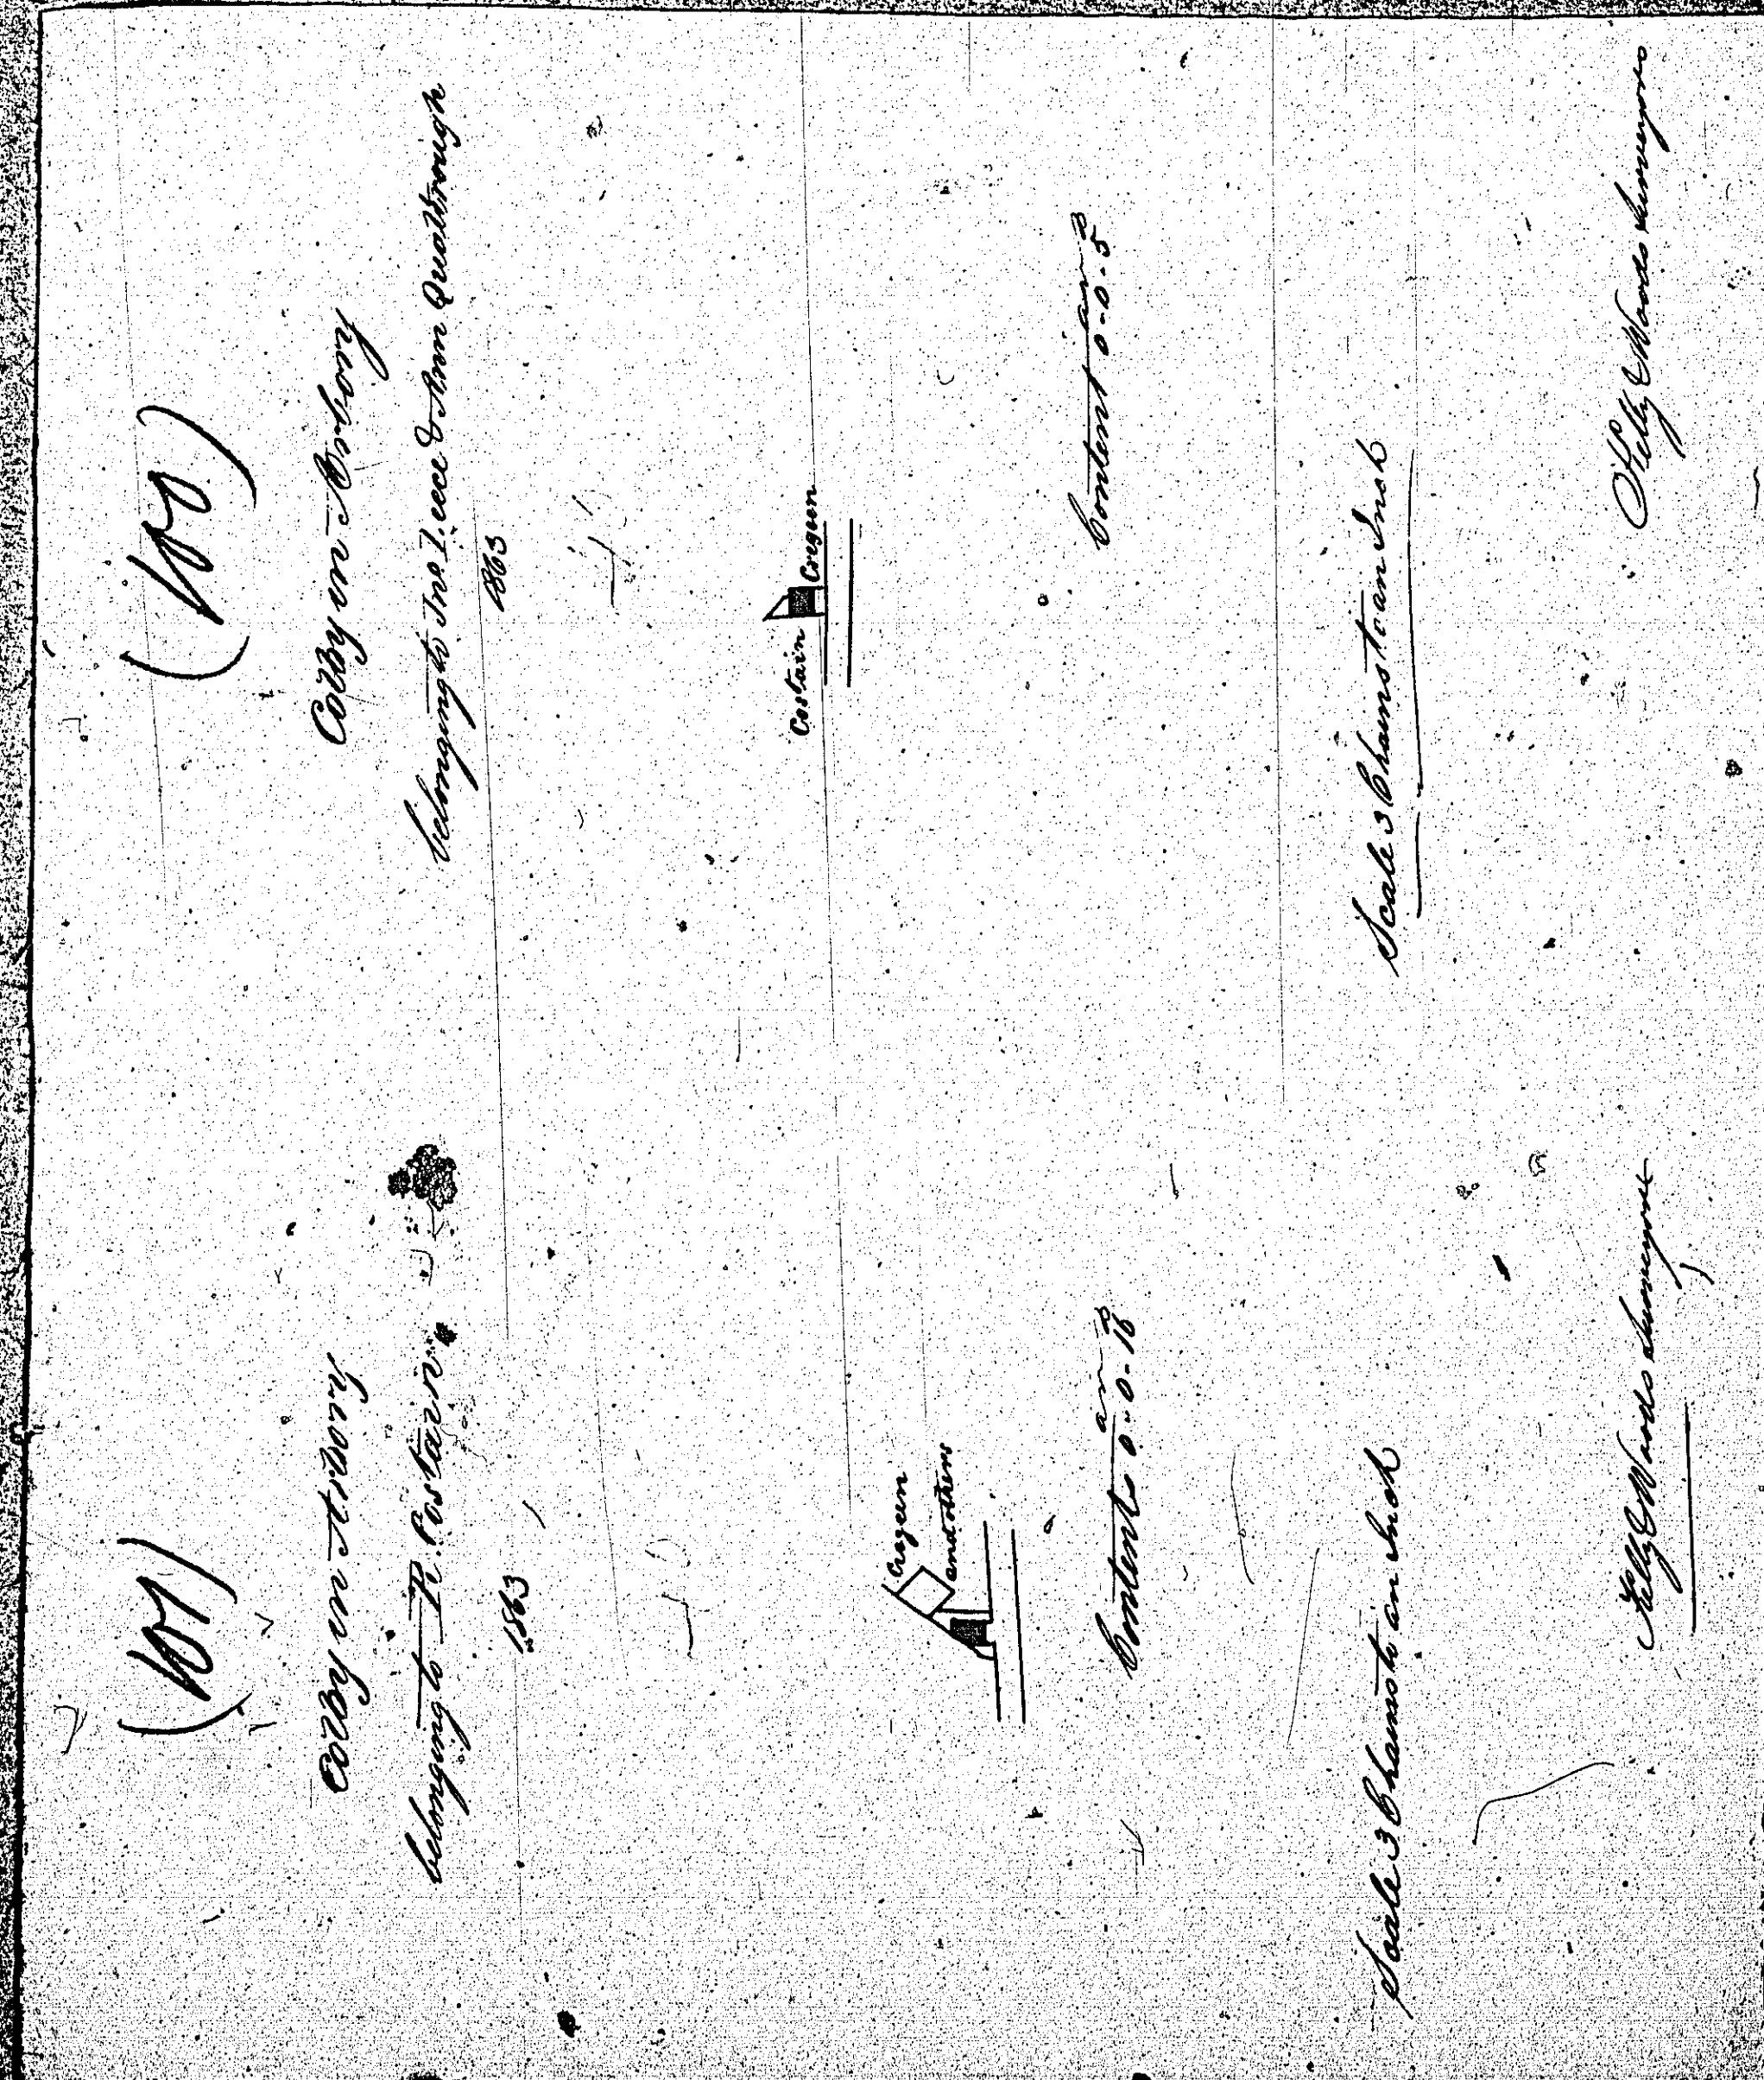 Colby in Arbory
belonging to R. Costain
1863
Cregeen
and others
a r p
Content 0-0-16
Scale 3 Chains to an Inch
Kelly & Woods Surveyors
Colby in Arbory
belonging to Jno. Leece & Ann Qualtrough
1863
Costain
Cregeen
a r p
Content 0-0-5
Scale 3 Chains to an Inch
Kelly & Woods Surveyors